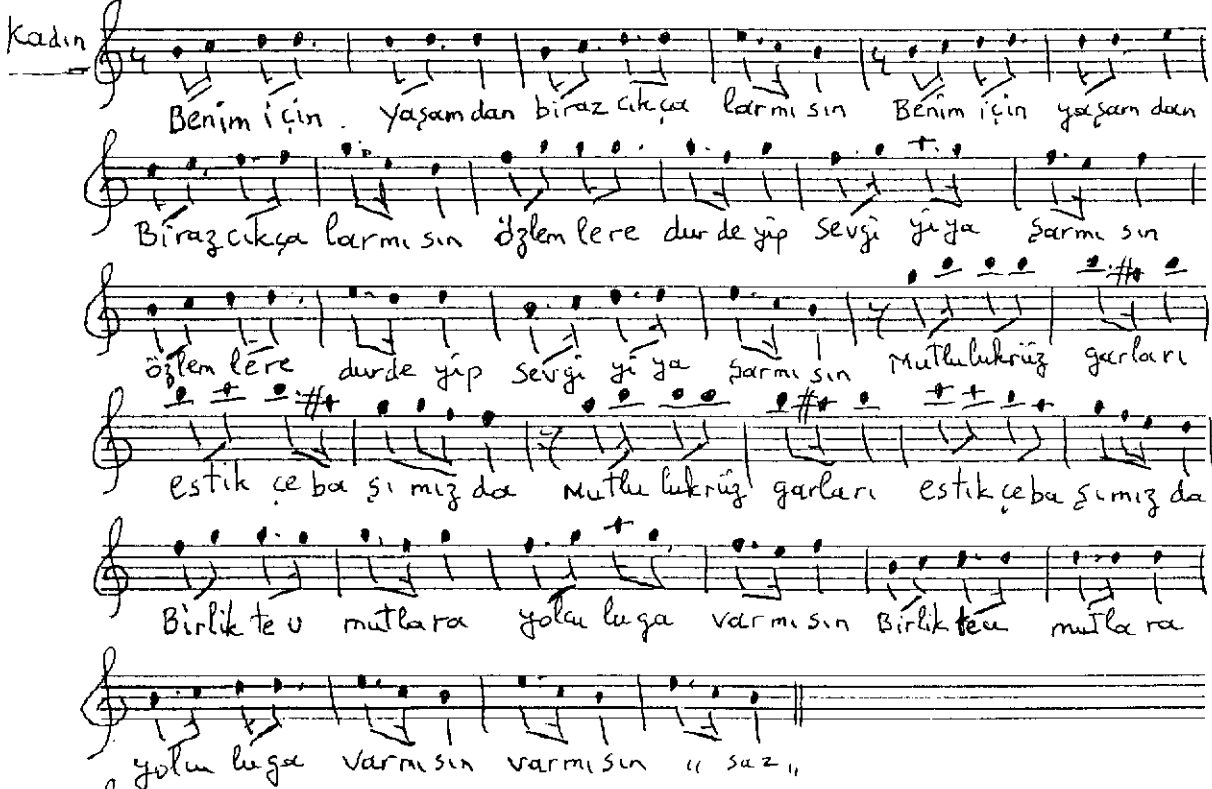 Kadın
Benim için yaşamdan biraz cıkça larmısın Benim için yaşam dan
Biraz cıkça larmı sın özlem lere dur de yip sevgi yi ya şarmı sın
özlem lere durde yip sevgi yi ya şarmı sın Mutlulukrüz garları
estik çe ba şı mız da Mutlu lukrüz garları estik çe ba şımız da
Birlik te u mutlara yolcu luga varmısın Birlik teu mutla ra
yolcu luga varmı sın varmısın " saz "